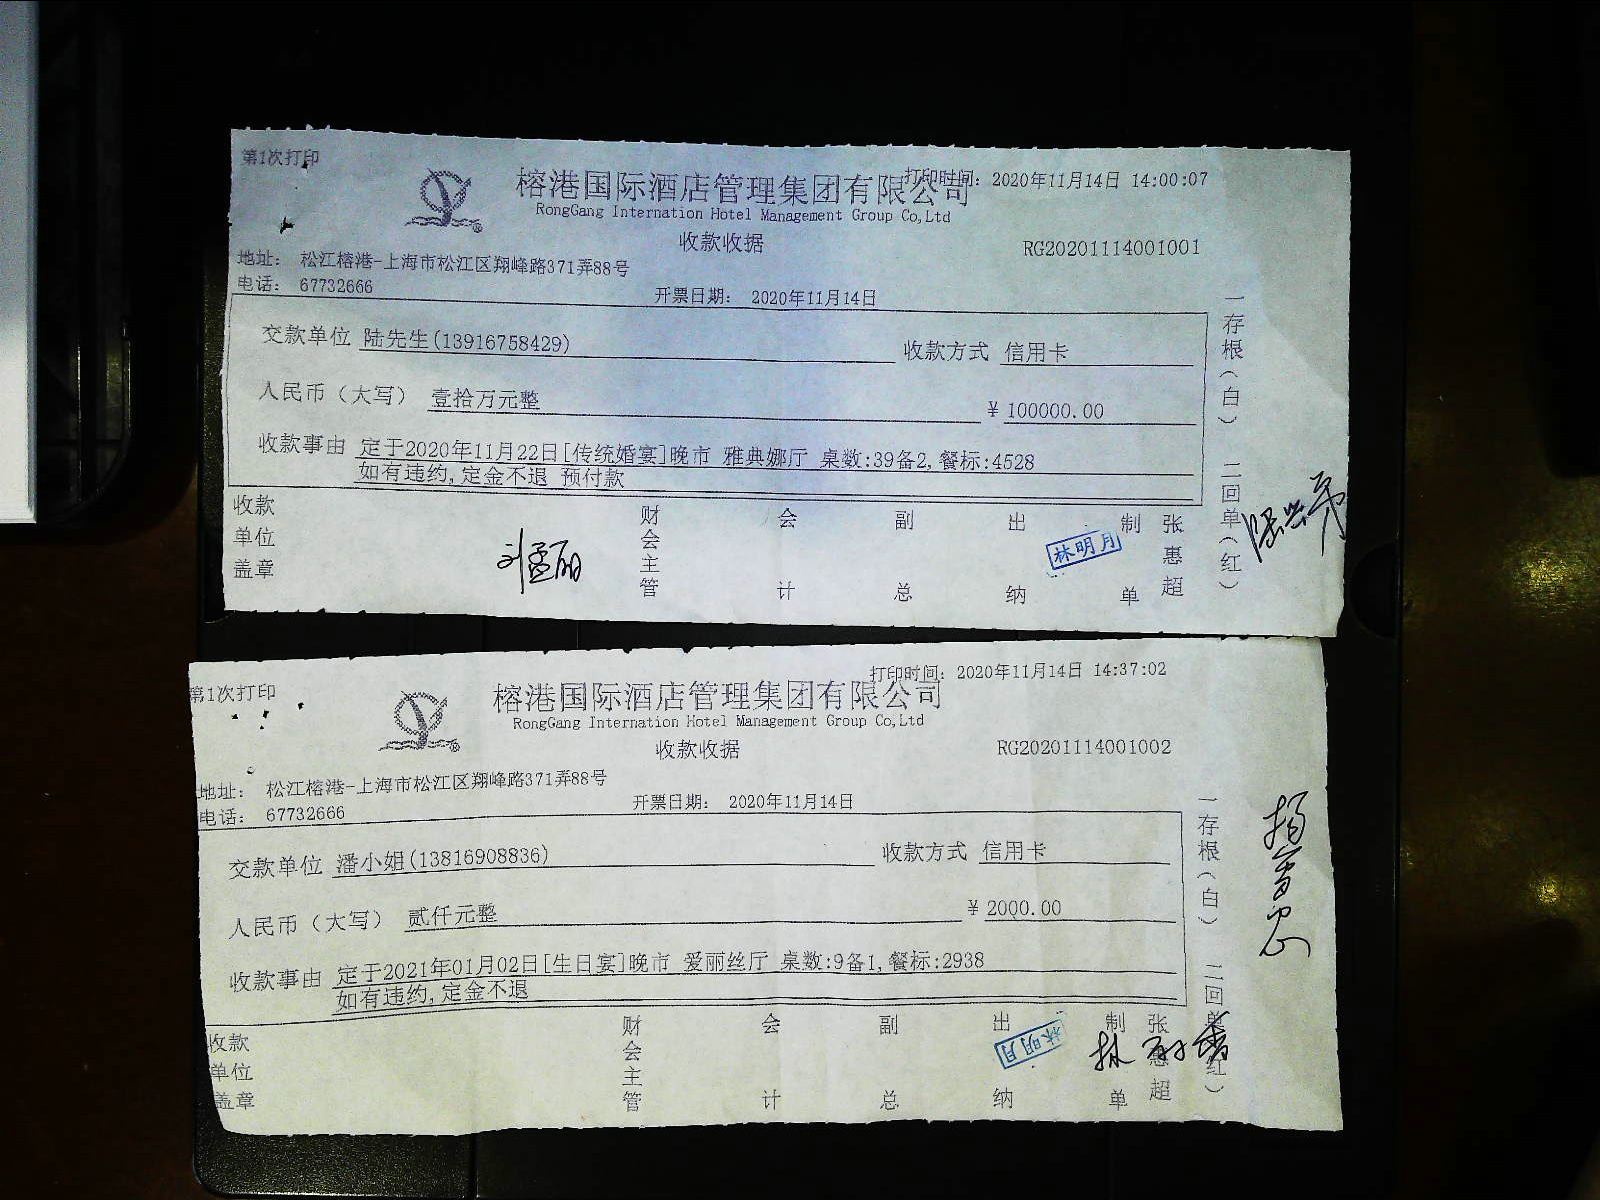 第1次打印
打印时间: 2020年11月14日 14:00:07
榕港国际酒店管理集团有限公司
RongGang Internation Hotel Management Group Co,Ltd
收款收据
RG20201114001001
地址: 松江榕港-上海市松江区翔峰路371弄88号
电话: 67732666
开票日期: 2020年11月14日
交款单位 陆先生(13916758429) 收款方式 信用卡
人民币（大写） 壹拾万元整 ¥ 100000.00
收款事由 定于2020年11月22日[传统婚宴]晚市 雅典娜厅 桌数:39备2,餐标:4528
如有违约,定金不退 预付款
收款单位盖章 财会主管 会计 副总 出纳 林明月 制单 张惠超
一存根（白） 二回单（红）
第1次打印
打印时间: 2020年11月14日 14:37:02
榕港国际酒店管理集团有限公司
RongGang Internation Hotel Management Group Co,Ltd
收款收据
RG20201114001002
地址: 松江榕港-上海市松江区翔峰路371弄88号
电话: 67732666
开票日期: 2020年11月14日
交款单位 潘小姐(13816908836) 收款方式 信用卡
人民币（大写） 贰仟元整 ¥ 2000.00
收款事由 定于2021年01月02日[生日宴]晚市 爱丽丝厅 桌数:9备1,餐标:2938
如有违约,定金不退
收款单位盖章 财会主管 会计 副总 出纳 林明月 制单 张惠超
一存根（白） 二回单（红）